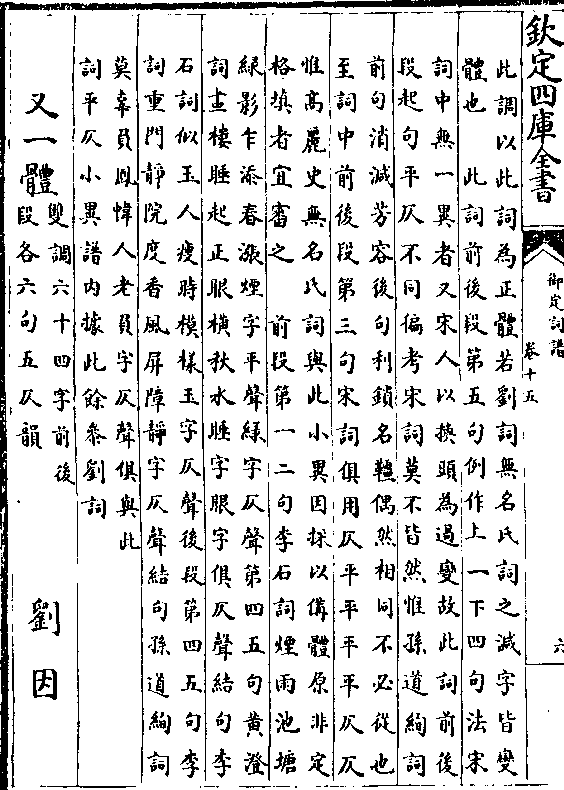 欽定四庫全書
御定詞譜
卷十五
六
此調以此詞為正體若劉詞無名氏詞之減字皆變
體也　此詞前後段第五句例作上一下四句法宋
詞中無一異者又宋人以換頭為過變故此詞前後
段起句平仄不同偏考宋詞莫不皆然惟孫道絢詞
前句消滅芳容後句利鎖名韁偶然相同不必從也
至詞中前後段第三句宋詞俱用仄平平平平仄仄
惟高麗史無名氏詞與此小異因採以備體原非定
格填者宜審之　前段第一二句李石詞煙雨池塘
綠影乍添春漲煙字平聲綠字仄聲第四五句黃澄
詞畫樓睡起正眼橫秋水睡字眼字俱仄聲結句李
石詞似玉人瘦時模樣玉字仄聲後段第四五句李
詞重門靜院度香風屏障靜字仄聲結句孫道絢詞
莫辜負鳳幃人老負字仄聲俱與此
詞平仄小異譜内據此餘叅劉詞
又一體
雙調六十四字前後
段各六句五仄韻
劉因